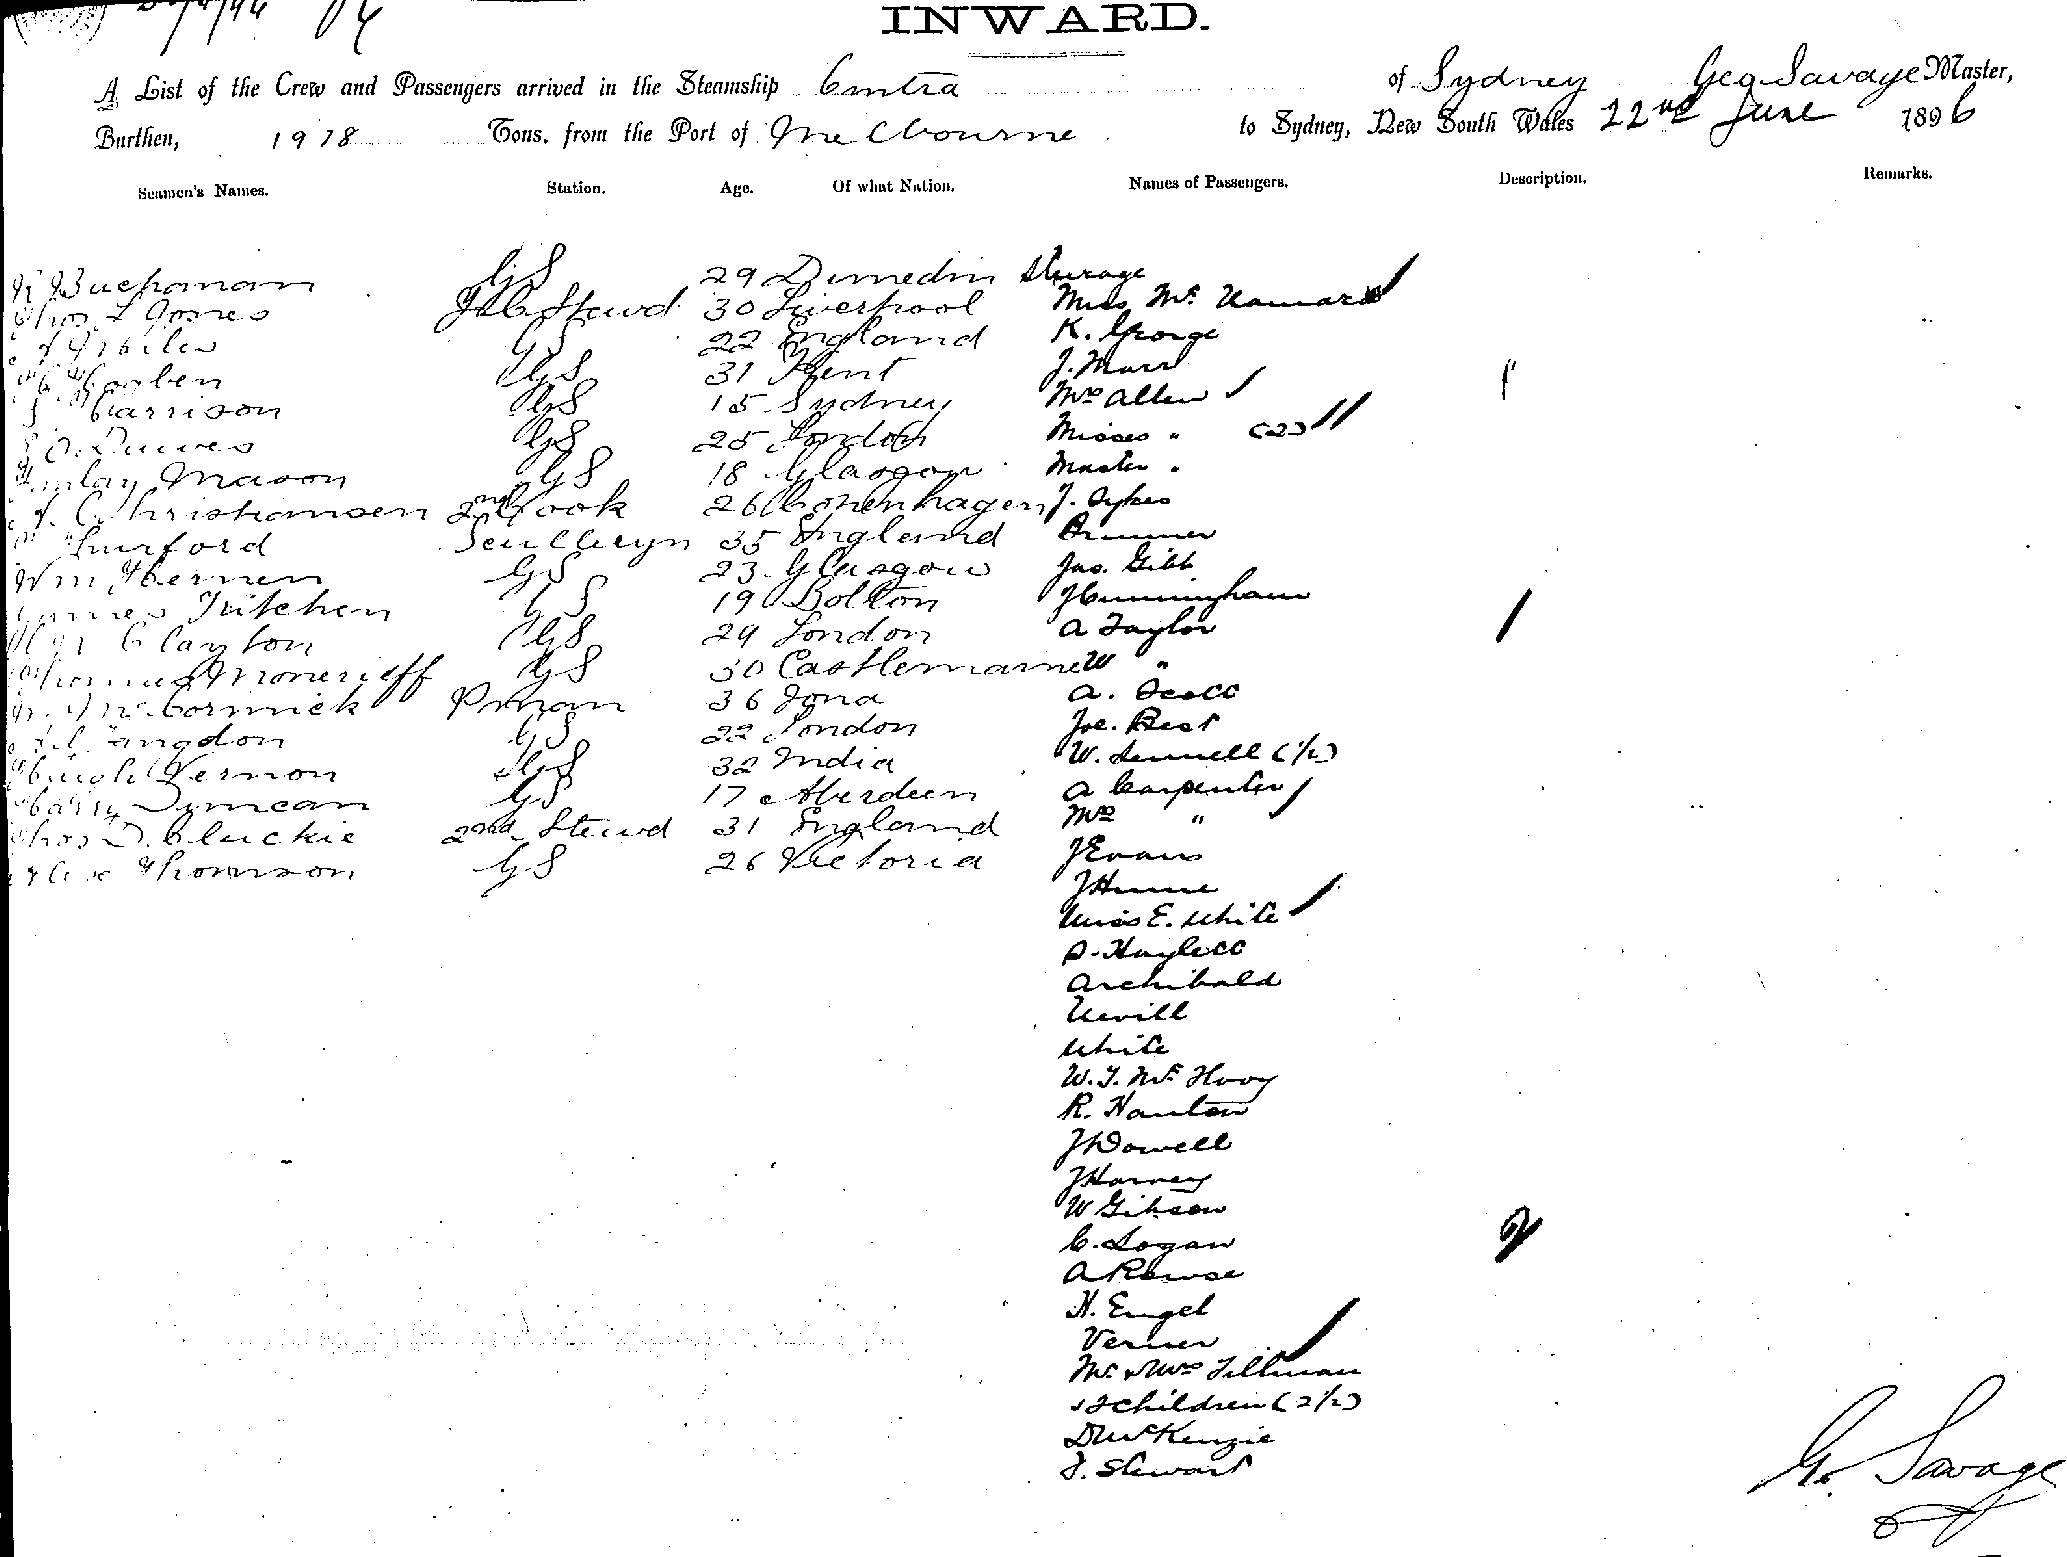 INWARD.
A List of the Crew and Passengers arrived in the Steamship Cintra of Sydney Geo Savage Master,
Burthen, 1978 Tons. from the Port of Melbourne to Sydney, New South Wales 22nd June 1896
Seamen's Names. Station. Age. Of what Nation. Names of Passengers. Description. Remarks.
Buchanan GS 29 Dunedin Steerage
Thos L Jones Stewd 30 Liverpool Miss Mc Namara
GS 22 England K. George
Hogben GS 31 Kent J. Marr
Harrison GS 15 Sydney Mrs Allen
GS 25 London Misses " (2)
Finlay Mason GS 18 Glasgow Master "
Christiansen 2nd Cook 26 Copenhagen J. Sykes
Sculleryn 35 England
Wm GS 23 Glasgow Jas. Gibb
James Kitchen GS 19 Bolton J Cunningham
Clayton GS 29 London A Taylor
Thomas Moncrieff GS 30 Castlemaine W "
McCormick Pman 36 Iona A. Scott
Langdon GS 22 London Joe. Best
Hugh Vernon GS 32 India W. (1/2)
Harry Duncan GS 17 Aberdeen A Carpenter
Thos D. Cluckie 2nd Stewd 31 England Mrs "
Thomson GS 26 Victoria J Evans
J Hume
Miss E. White
Archibald
Nevill
White
W. J. Mc
R. Hanlon
J Dowell
J Harvey
W Gibson
C. Logan
A Rowse
H. Engel
Verner
Mr & Mrs Tillman
& 2 children (2/2)
D McKenzie
J. Stewart
Geo. Savage